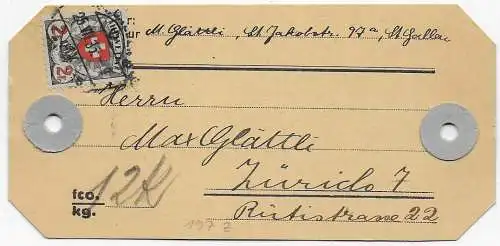 M. Glättli, St. Jakobstr. 97a, St. Gallen
Herrn
Max Glättli
Zürich 7
Rütistrasse 22
fco.
kg.
12k
197 z
2 2